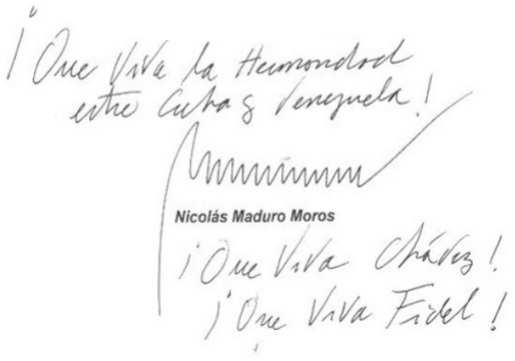 ¡Que Viva la Hermandad
entre Cuba y Venezuela!
Nicolás Maduro Moros
¡Que Viva Chávez!
¡Que Viva Fidel!